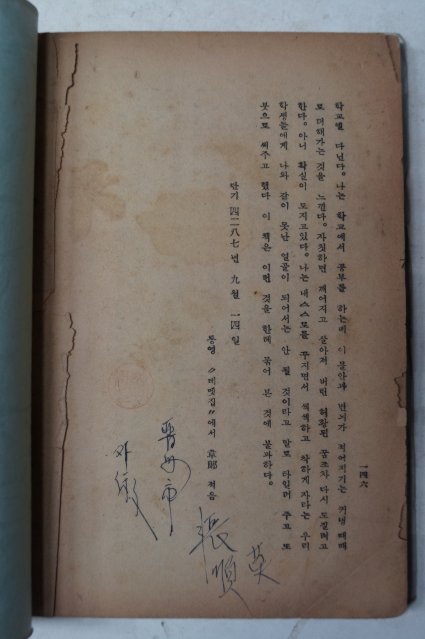 학교엘 다닌다. 나는 학교에서 공부를 하는데 이 불안과 번뇌가 적어지기는 커녕 때때
로 더해가는 것을 느낀다. 자칫하면 깨어지고 살아져 버린 허황된 꿈조차 다시 도질려고
한다. 아니 확실이 도지고있다. 나는 네스스로를 꾸지면서 씩씩하고 착하게 자라는 우리
학생들에게 나와 같이 못난 얼골이 되어서는 안 될 것이라고 말로 타일러 주고 또
붓으로 써주고 했다 이 책은 이런 것을 한데 묶어 본 것에 불과하다.
단기 四二八七년 九월 一四일
통영 에서 章郞 적음
一四六
晋州市
張順英